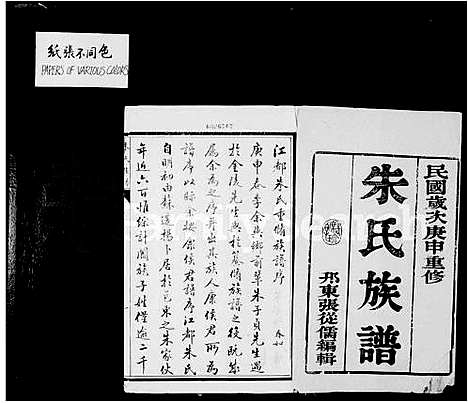 紙張不同色
PAPERS OF VARIOUS COLORS
民國歲次庚申重修
朱氏族譜
邗東張從儒編輯
江都朱氏重修族譜序
庚申春季余與鄉前輩朱子貞先生遇
於金陵先生於修族譜之後既
屬余為之序並出其族人康侯君所為
譜序以康侯君譜序江都朱氏
自明初由蘇遷揚卜居於邑東之朱家伙
年近六百惟綜計闔族子姓僅逾二千